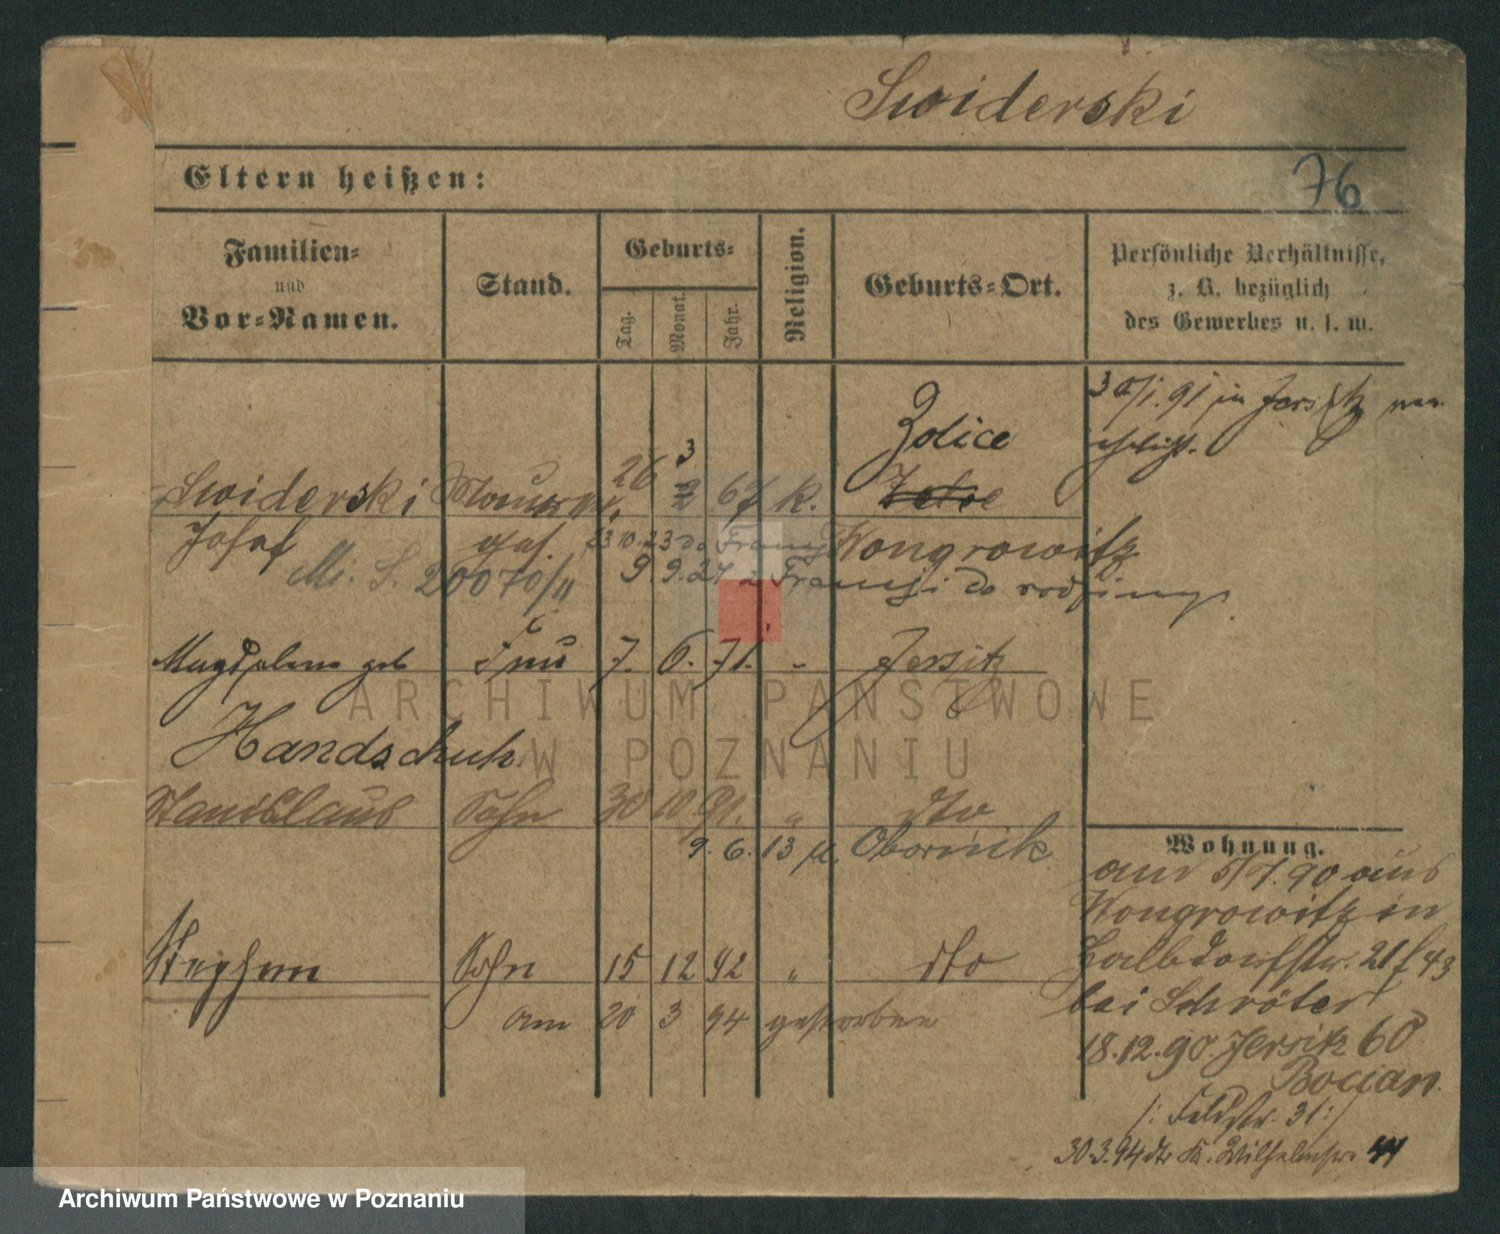 Swiderski
76
Eltern heißen:
Familien-
und
Vor-Namen.
Stand.
Geburts-
Tag.
Monat.
Jahr.
Religion.
Geburts-Ort.
Persönliche Verhältnisse,
z. B. bezüglich
des Gewerbes u. s. w.
30/1. 91 in Jersitz ver
ehelicht.
Zolice
Swiderski 26 3 2 67 K.
Josef ges. 23 10. 23 do Wongrowitz
9 9. 27 z Francji do rodziny
Magdalena geb Frau 7. 6. 71. " Jersitz
Handschuh
Stanislaus Sohn 30 10 91. " dto
9. 6. 13 Obornik
Stephan Sohn 15 12 92 " dto
am 20 3 94 gestorben
Wohnung.
am 5/7. 90 aus
Wongrowitz in
Halbdorfstr. 21 f 43
bei Schröter
18. 12. 90. Jersitz 60
Bocian.
/: Feldstr. 31 :/
30. 3. 94 dto K. Wilhelmstr. 44
ARCHIWUM PAŃSTWOWE
W POZNANIU
Archiwum Państwowe w Poznaniu